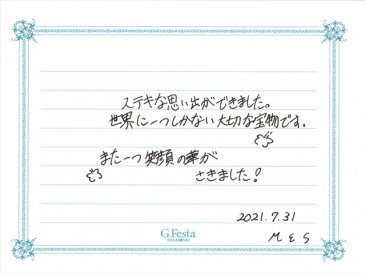 ステキな思い出ができました。
世界に一つしかない大切な宝物です。
また一つ笑顔の華が
さきました！
2021.7.31
M & S
G.Festa